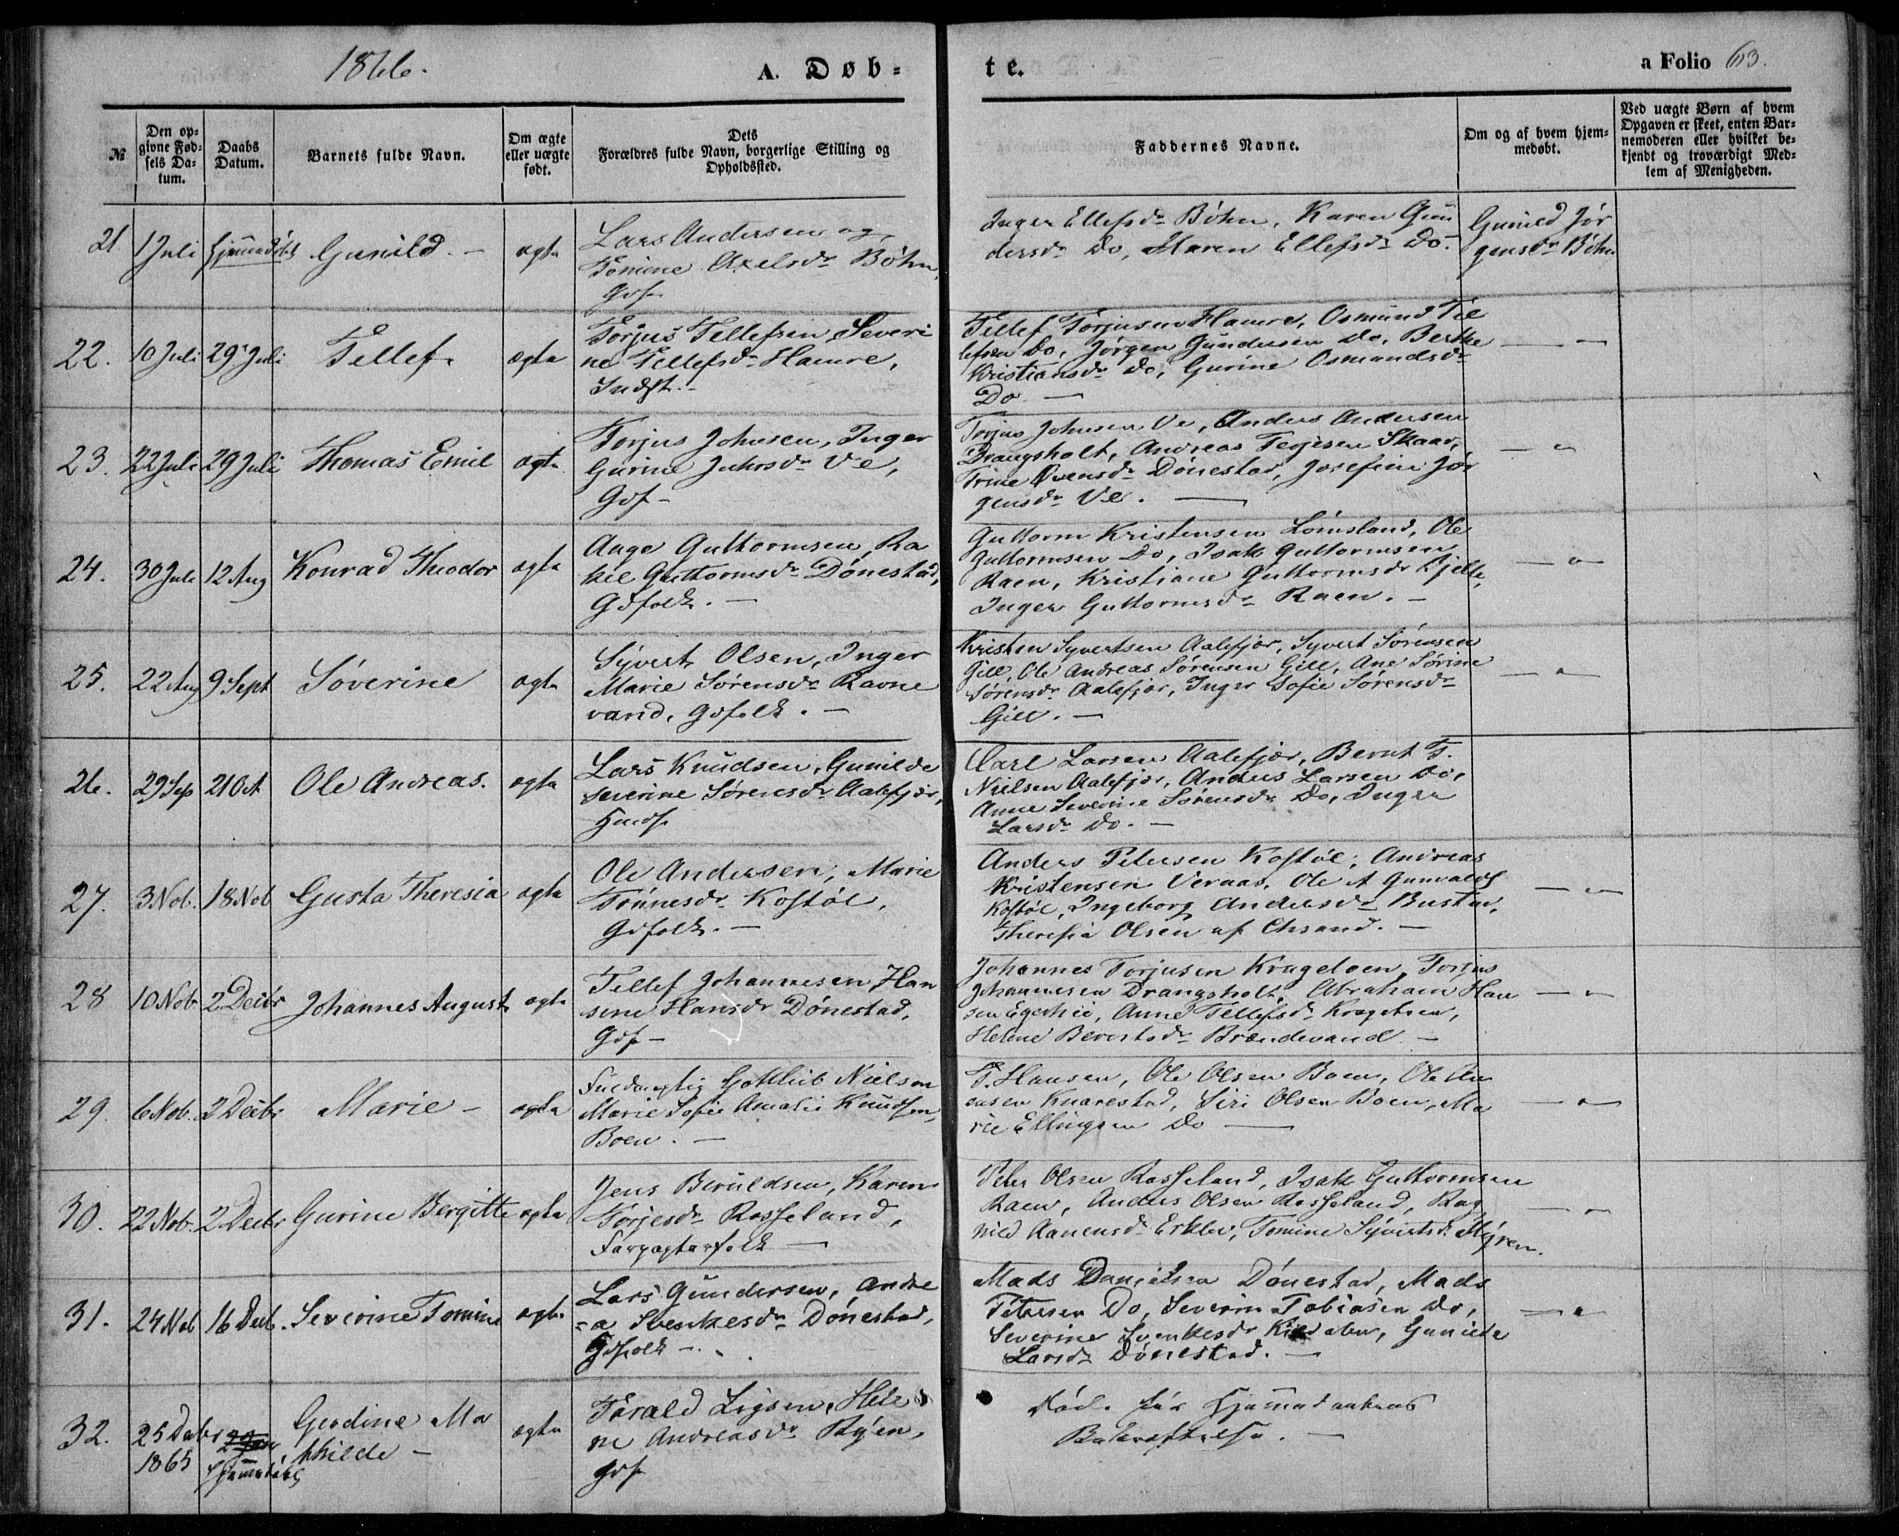 1866.
A. Døb-
te.
a Folio 63.
№
Den op-
givne Fød-
sels Da-
tum.
Daabs
Datum.
Barnets fulde Navn.
Om ægte
eller uægte
født.
Dets
Forældres fulde Navn, borgerlige Stilling og
Opholdssted.
Faddernes Navne.
Om og af hvem hjem-
medøbt.
Ved uægte Børn af hvem
Opgaven er skeet, enten Bar-
nemoderen eller hvilket be-
kjendt og troværdigt Med-
lem af Menigheden.
21. 1 Juli Hjemmedøbt Gunild - ægte
Lars Andersen og
Tomine Axelsdr Bøhn,
Gdf.
Inger Ellefsdr Bøhn, Karen Gun
dersdr Do, Maren Ellefsdr Do.
Gunild Jør
gensdr Bøhn
22. 10 Juli 29 Juli Tellef. ægte
Torjus Tellefsen, Severi
ne Tellefsdr Hamre,
Indst. -
Tellef Torjusen Hamre, Osmund Tel
lefsen Do, Jørgen Gundersen Do, Berthe
Kristiansdr Do, Gurine Osmundsdr
Do. -
23. 22 Juli 29 Juli Thomas Emil ægte
Torjus Johnsen, Inger
Gurine Juhrsdr Ve,
Gdf -
Torjus Johnsen Ve, Anders Andersen
Drangsholt, Andreas Terjesen Skaar,
Trine Evensdr Dønestad, Josefine Jør
gensdr Ve. -
24. 30 Juli 12 Aug Konrad Theodor ægte
Aage Guttormsen, Ra
kel Guttormsdr Dønestad,
Gdfolk. -
Guttorm Kristensen Lømsland, Ole
Guttormsen Do, Isak Guttormsen
Raen, Kristiane Guttormsdr
Inger Guttormsdr Raen. -
25. 22 Aug 9 Sept Søverine ægte
Syvert Olsen, Inger
Marie Sørensdr Ravne
vand, Gdfolk. -
Kristen Syvertsen Aalefjær, Syvert Sørensen
Gill, Ole Andreas Sørensen Gill, Ane Sørine
Sørensdr Aalefjær, Inger Sofie Sørensdr
Gill. -
26. 29 Sep 21 Oct Ole Andreas. ægte
Lars Knudsen, Gunilde
Severine Sørensdr Aalefjær,
Carl Larsen Aalefjær, Bernt T.
Nielsen Aalefjær, Anders Larsen Do,
Anne Severine Sørensdr Do, Inger
Larsdr Do. -
27. 3 Nob. 18 Nob Gusta Theresia ægte
Ole Andersen, Marie
Tønnesdr Kostøl,
Gdfolk. -
Anders Petersen Kostøl, Andreas
Kristensen Veraas, Ole A Gunvalds
Kostøl, Ingeborg Andersdr Bustad,
Theresia Olsen af Chrsand. -
28 10 Nob 2 Decbr Johannes August ægte
Tellef Johannesen, Han
sine Hansdr Dønestad,
Gdf -
Johannes Torjusen Krageboen, Torjus
Johannesen Drangsholt, Abraham Han
sen Egerhei, Anne Tellefsdr
Helene Brændevand -
29. 6 Nob. 2 Decbr Marie - ægte
Fuldmægtig Gottlieb Nielsen
Marie Sofie Amalie Knudsen,
Boen. -
T. Hansen, Ole Olsen Boen, Ole An
Knarestad, Siri Olsen Boen, Ma
rie Ellingsen Do -
30. 22 Nob. 2 Decbr Gurine Bergitte ægte
Jens Beruldsen, Karen
Torjesdr Rosseland,
Forpagterfolk -
Peter Olsen Rosseland, Isak Guttormsen
Raen, Anders Olsen Rosseland, Rag
nild Aanensdr Erklev, Tomine Syvertsdr Myren.
31. 24 Nob 16 Decb. Severine Tomine ægte
Lars Gundersen, Andre
=a Svenkesdr Dønestad,
Gdfolk -
Mads Danielsen Dønestad, Mads
Petersen Do, Severin Tobiasen Do,
Severine Svenkesdr Gunilde
Larsdr Dønestad. -
32. 25 Decbr
1865
Hjemmedøbt
Gerdine Ma
thilde -
ægte
Torald Ligsen, Hele
ne Andreasdr Ryen,
Gdf
Død før Hjemmedaabens
Bekræftelse. -